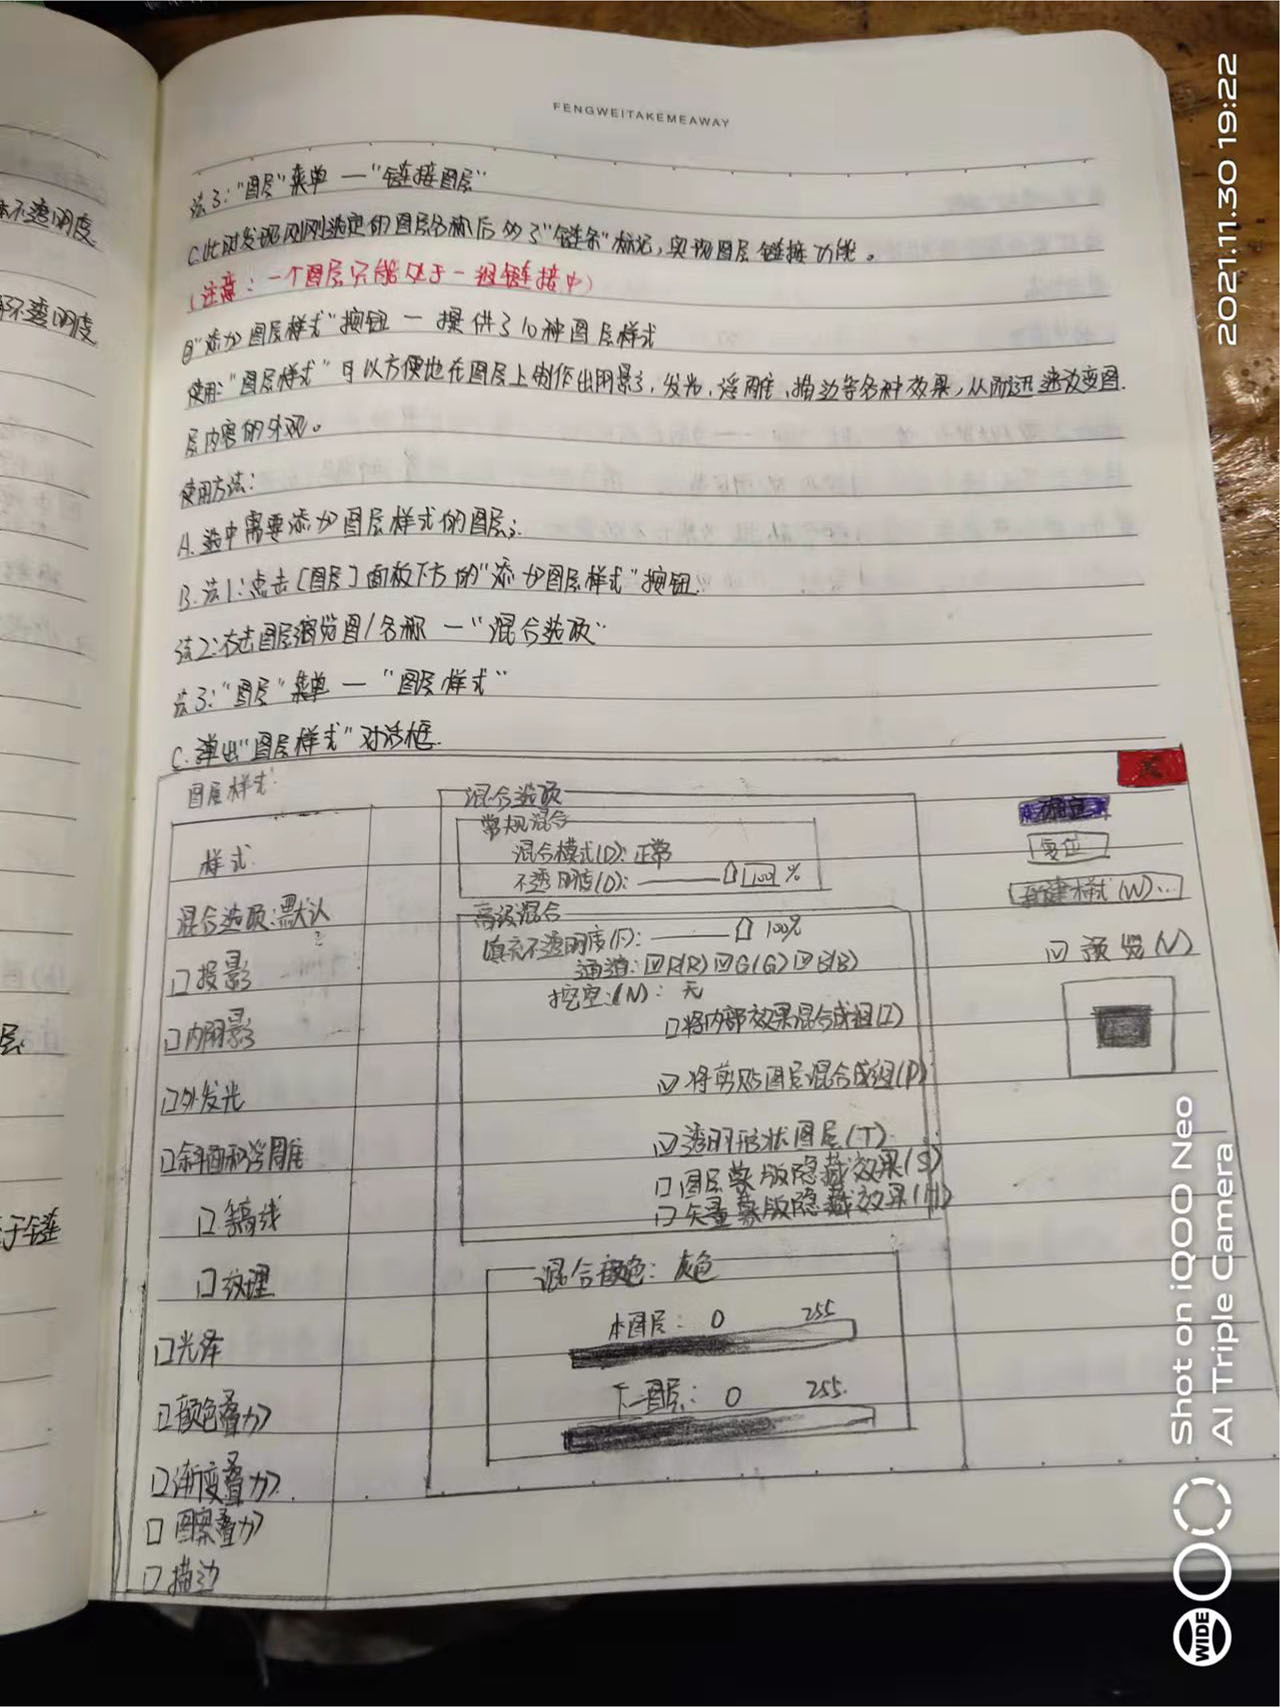 FENGWEITAKEMEAWAY
法3:"图层"菜单 — "链接图层"
C.此时发现刚刚选定的图层名称后多了"链条"标记,实现图层链接功能。
(注意:一个图层只能处于一组链接中)
"添加图层样式"按钮 — 提供了10种图层样式
使用:"图层样式"可以方便地在图层上制作出阴影,发光,浮雕,描边等各种效果,从而迅速改变图
层内容的外观。
使用方法:
A.选中需要添加图层样式的图层;
B.法1:点击[图层]面板下方的"添加图层样式"按钮.
法2:右击图层缩览图/名称 — "混合选项"
法3:"图层"菜单 — "图层样式"
C.弹出"图层样式"对话框.
图层样式:
样式
混合选项:默认
投影
内阴影
外发光
斜面和浮雕
等高线
纹理
光泽
颜色叠加
渐变叠加
图案叠加
描边
混合选项
常规混合
混合模式(D):正常
不透明度(O): 100 %
高级混合
填充不透明度(F): 100%
通道: R(R) G(G) B(B)
挖空:(N):无
将内部效果混合成组(I)
将剪贴图层混合成组(P)
透明形状图层(T)
图层蒙版隐藏效果(S)
矢量蒙版隐藏效果(H)
混合颜色:灰色
本图层: 0 255
下一图层: 0 255
关
确定
复位
新建样式(W)…
预览(V)
不透明度
不透明度
层
于链
2021.11.30 19:22
Shot on iQOO Neo
AI Triple Camera
WIDE